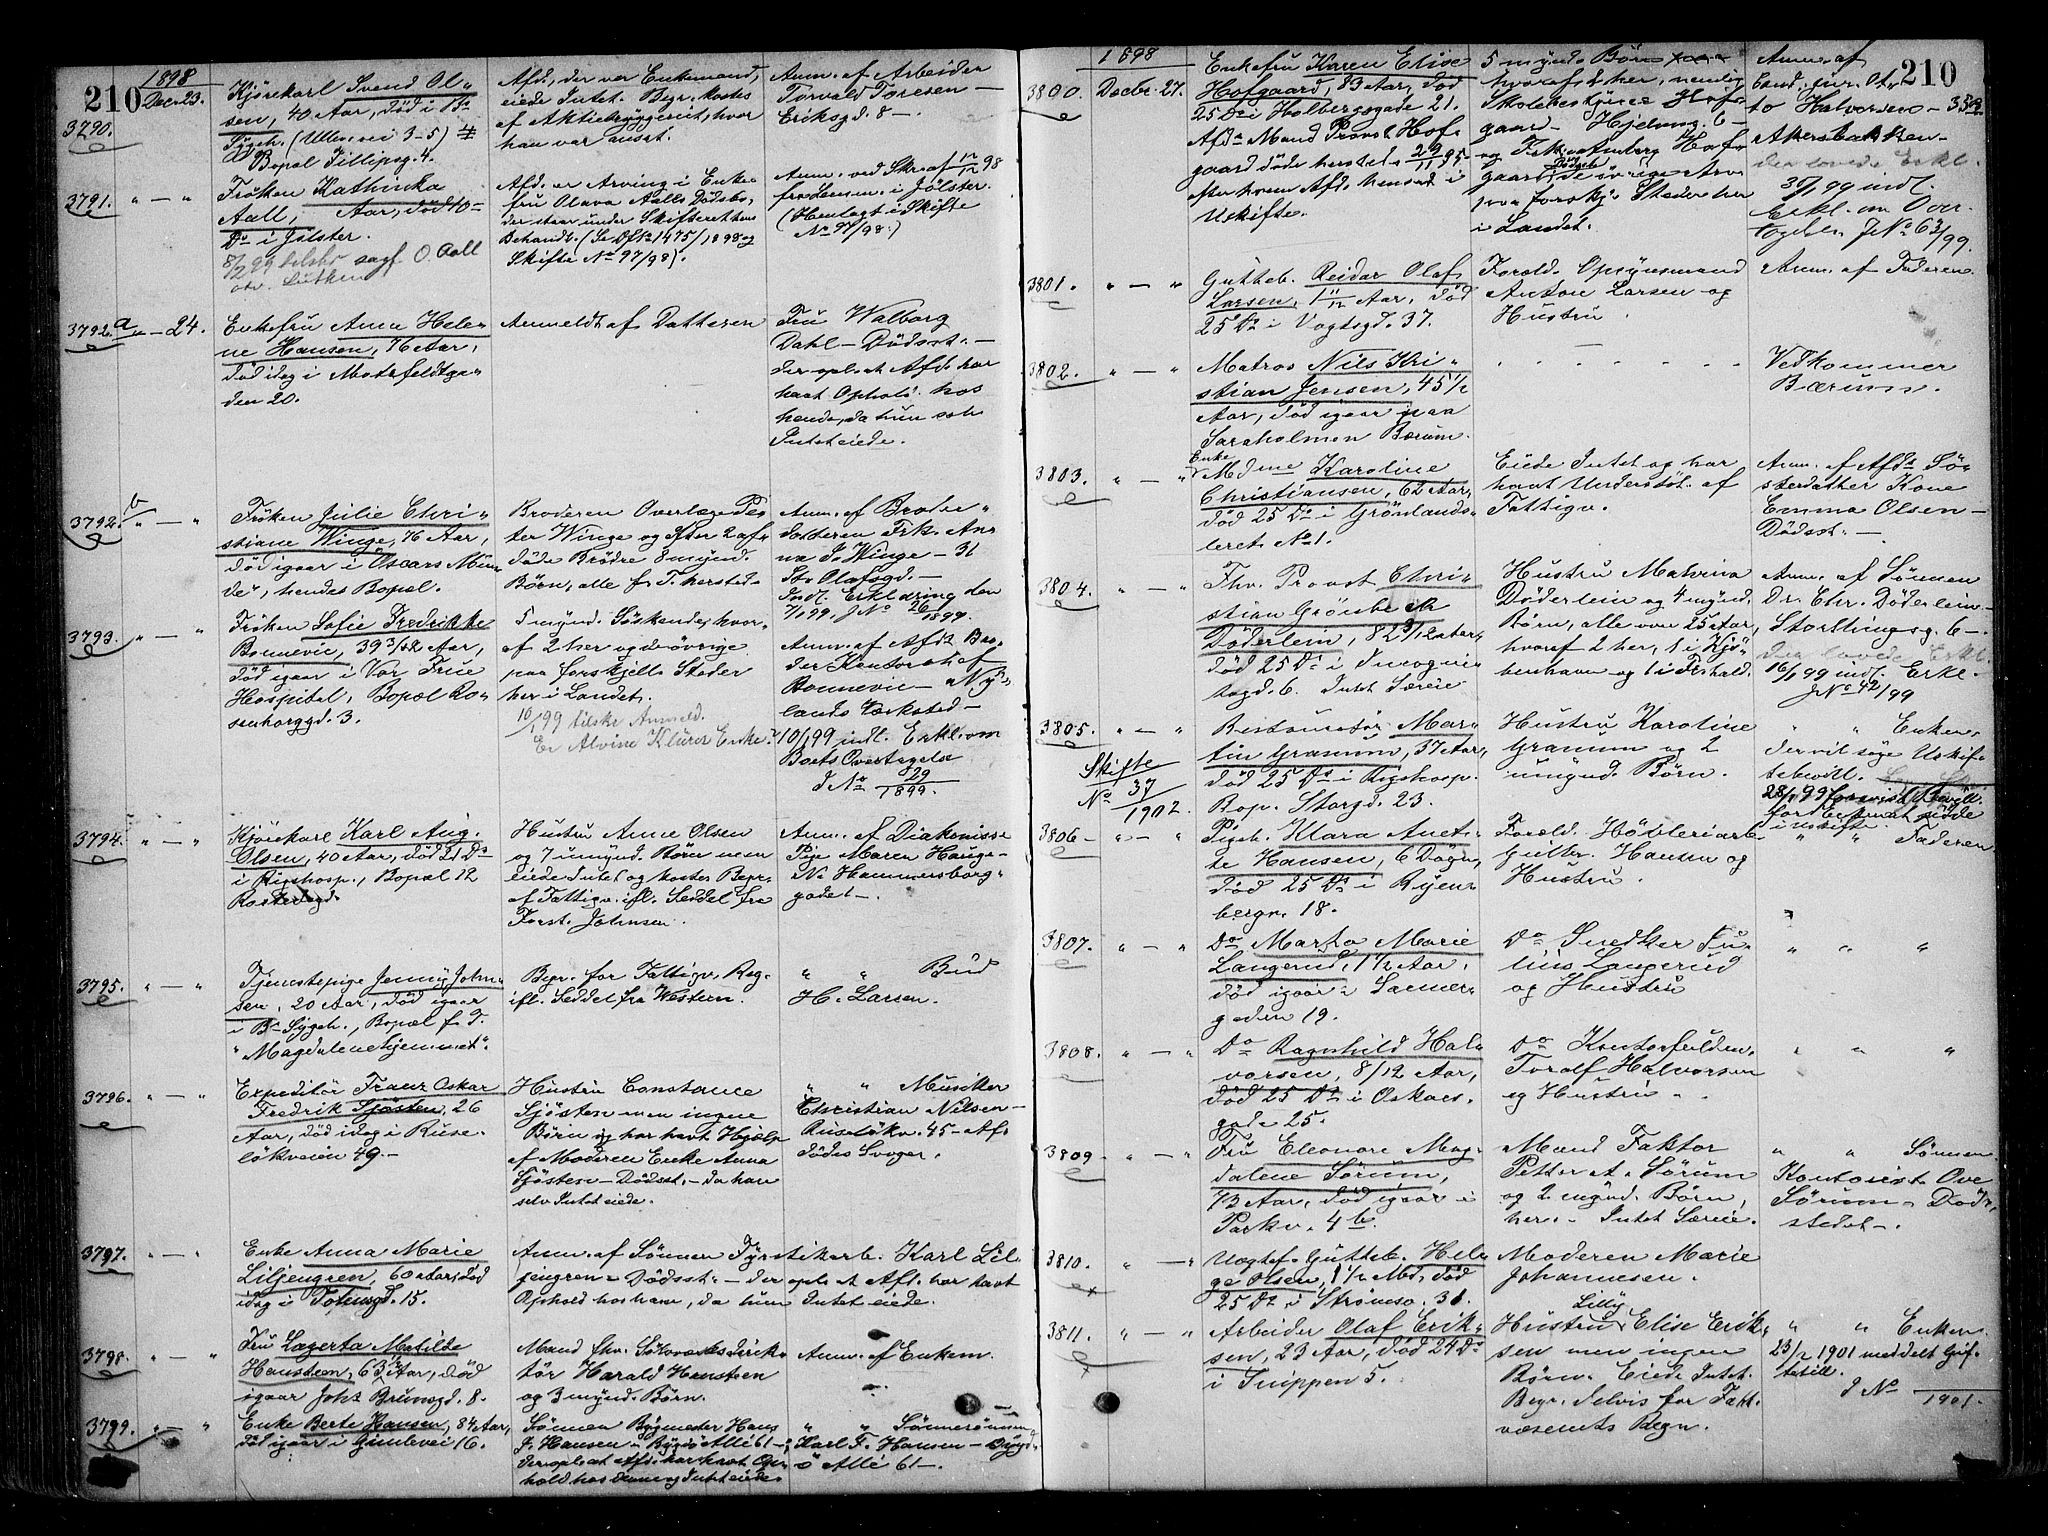 210
1898
Decbr 23.
3790.
Kjørekarl Svend Ol-
sen, 40 Aar, død i Bs
Sygeh. (Ullev. vei 3-5)
Bopæl Fillipsg. 4.
Afd., der var Enkemand,
eiede Intet. Begr. kostes
af Aktiebryggeriet, hvor
han var ansat.
Anm. af Arbeider
Torvald Toresen —
Eriksgd. 8 —.
3791. " — "
Frøken Kathinka
Aall, Aar, død 10
Ds i Jølster.
8/2 99 tilskr. sagf. O. Aall
Afd. er Arving i Enke-
fru Olava Aalls Dødsbo,
der staar under Skifterettens
Behandl. (Se Df No 1475/1898 og
Skifte No 97/98).
Anm. ved Skr. af 17/12 98
fra Lensm. i Jølster.
(Henlagt i Skifte
No 97/98.)
3792.a " — 24.
Enkefru Anna Hele-
ne Hansen, 76 Aar,
død idag i Motzfeldtga-
den 20.
Anmeldt af Datteren
Fru Walborg
Dahl — Dødsst. —
der opl. at Afd. har
havt Ophold hos
hende, da hun selv
Intet eiede.
3792.b " — "
Frøken Julie Chri-
stiane Winge, 76 Aar,
død igaar i "Oscars Min-
de", hendes Bopæl.
Broderen Overlæge Pe-
ter Winge og efter 2 af-
døde Brødre 8 mynd.
Børn, alle f. T. herst ed.
Anm. af Broder-
datteren Frk. An-
na J. Winge — 31
St. Olafsgd. —
Indl. Erklæring den
7/1 99. J No 26/1899.
3793. " — "
Frøken Sofie Fredrikke
Bonnevie, 39 3/12 Aar,
død igaar i Vor Frue
Hospital, Bopæl Ro-
senborggd. 3.
5 mynd. Søskende, hvor-
af 2 her og de øvrige
paa forskjell. Steder
her i Landet.
10/1 99 tilskr. Anmeld.
Anm. af Afds Bro-
der Kontorchef
Bonnevie — Ny-
lands Værksted —
10/1 99 indl. Erkl. om
Boets Overtagelse
J No 29/1899.
3794. " — "
Kjørekarl Karl Aug.
Olsen, 40 Aar, død 21 Ds
i Rigshosp., Bopæl 12
Hustru Anne Olsen
og 7 umynd. Børn men
eiede Intet og kostes Begr.
af Fattigv. ifl. Seddel fra
Forst. Johnsen.
Anm. af Diakonisse
Pige Maren Hauge —
No Hammersborg-
gadet —.
3795. " — "
Tjenestepige Jenny John-
sen, 20 Aar, død igaar
i Bs Sygeh., Bopæl f. T.
"Magdalenehjemmet".
Begr. for Fattigv. Reg.
ifl. Seddel fra Western.
" " Bud
H. Larsen.
3796. " — "
Expeditør Franz Oskar
Fredrik Sjøsten, 26
Aar, død idag i Ruse-
løkveien 49 —
Hustru Constance
Sjøsten men ingen
Børn og har havt Hjælp
af Moderen Enke Anna
Sjøsten — Dødsst. — da han
selv Intet eiede.
" " Musiker
Christian Nilsen —
Ruseløkv. 45 — Af-
dødes Svoger.
3797. " — "
Enke Anna Marie
Liljengren, 60 Aar, død
idag i Tøiensgd. 15.
Anm. af Sønnen Fyrstikarb. Karl Lil-
jengren — Dødsst. — der opl. at Afd. har havt
Ophold hos ham, da hun Intet eiede.
3798. " — "
Fru Lagerta Matilde
Hansteen, 63 Aar, død
igaar Johs Brunsgd. 8.
Mand fhv. direk-
tør Harald Hansteen
og 3 mynd. Børn.
Anm. af Enkem.
3799. " — "
Enke Berte Hansen, 84 Aar,
død igaar i Gimlevei 16.
Sønnen Bygmester Hans
J. Hansen — Bygdø Allé 61 —
der opl. at Afd. har havt Op-
hold hos denne og Intet eiede.
" " Sønnesønnen
Karl F. Hansen — Bygd-
ø Allé 61 —.
210
1898
3800. Decbr. 27.
Enkefru Karen Elise
Hofgaard, 83 Aar, død
25 Ds i Holbergsgade 21.
Afds Mand Provst Hof-
gaard døde herst ed. 29/11 95
efter hvem Afd. hensad i
Uskifte.
5 mynd. Børn
hvoraf 2 her, nemlig
Skolebestyrer Hof-
gaard — Hjelmsg. 6 —
og Frk. Hof-
gaard, de øvrige Arv.
paa forskj. Steder her
i Landet.
Anm. af
Cand. jur. Ot-
to Halvorsen — 35a
Akersbakken —
der lovede Erkl.
30/1 99 indl.
Erkl. om Over-
tagelse J No 63/99.
3801. " — "
Gutteb. Reidar Olaf
Larsen, 1 11/12 Aar, død
25 Ds i Vogtsgd. 37.
Foræld. Opsynsmand
Anton Larsen og
Hustru.
Anm. af Faderen.
3802. " — "
Matros Nils Kri-
stian Jensen, 45 1/2
Aar, død igaar paa
Saraholmen Bærum.
Vedkommer
Bærum.
3803. " — "
Enke
Mdme Karoline
Christiansen, 62 Aar,
død 25 Ds i Grønlands-
leret No 1.
Eiede Intet og har
havt Understøt. af
Fattigv.
Anm. af Afds Sø-
sterdatter Kone
Emma Olsen —
Dødsst. —
3804. " — "
Fhv. Provst Chri-
stian Grønbech
Døderlein, 82 9/12 Aar,
død 25 Ds i Incogni-
togd. 6. Intet Særeie
Hustru Matvina
Døderlein og 4 mynd.
Børn, alle over 25 Aar,
hvoraf 2 her, 1 i Kjø-
benhavn og 1 i Frhald.
Anm. af Sønnen
Dr. Chr. Døderlein —
Storthingsg. 6 —
der lovede Erkl.
16/1 99 indl. Erkl.
J No 42/99
3805. " — "
Skifte
No 37/1902.
Restauratør Mar-
tin Granum, 37 Aar,
død 25 Ds i Rigshosp.
Bop. Storgd. 23.
Hustru Karoline
Granum og 2
umynd. Børn.
" " Enken,
der vil søge Uskif-
tebevill.
3806 — " — "
Pigeb. Klara Anet-
te Hansen, 6 Døgn,
død 25 Ds i Ryens-
bergn. 18.
Foræld. Høvleriarb.
Guttor. Hansen og
Hustru.
" " Faderen
3807. " — "
Do Marta Marie
Langerud, 1 1/2 Aar,
død igaar i Sanner-
gaden 19.
Do Snedker Ju-
lius Langerud
og Hustru
" " "
3808. " — "
Do Ragnhild Hal-
vorsen, 8/12 Aar,
død 25 Ds i Oskars-
gade 25.
Do Kontorfuldm.
Toralf Halvorsen
og Hustru.
" " "
3809 " — "
Fru Eleonore Mag-
dalene Sørum,
73 Aar, død igaar i
Parkv. 4 b.
Mand Faktor
Petter A. Sørum
og 2 mynd. Børn,
her. Intet Særeie.
" " Sønnen
Kontorist Ove
Sørum — Død-
stedet —.
3810. " — "
Uægtef. Gutteb. Hel-
ge Olsen, 1 1/2 Md, død
25 Ds i Strømsv. 31.
Moderen Marie
Johannesen.
3811. " — "
Arbeider Olaf Erik-
sen, 23 Aar, død 24 Ds
i Snippen 5.
Lilly
Hustru Elise Erik-
sen men ingen
Børn. Eiede Intet.
Begr. Selvis for Fatt.
væsenets Regn.
" " Enken
23/2 1901 meddelt Gif-
tetill.
J No /1901.